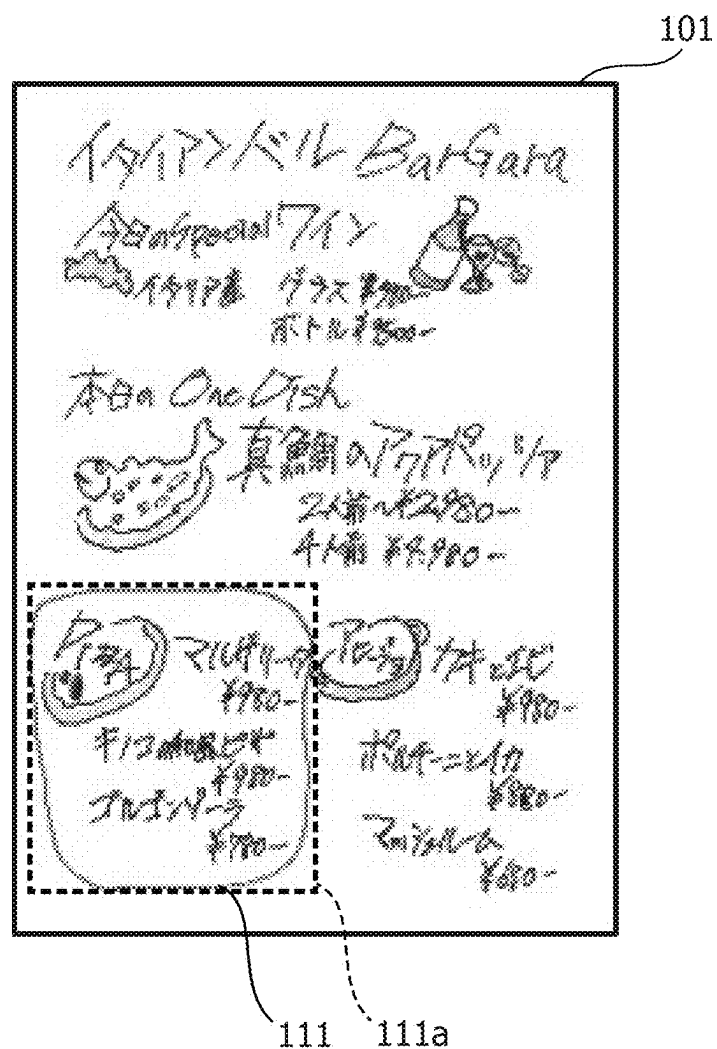 101
イタリアンバル BarGara
今日のSpecial ワイン
イタリア産 グラス
ボトル
本日の One Dish
真鯛のアクアパッツァ
2人前〜¥2,980-
4人前 ¥4,980-
マルゲリータ
¥980-
キノコの和風ピザ
¥980-
¥780-
アヒージョ
カキとエビ
¥980-
ポルチーニとイカ
¥880-
マッシュルーム
¥680-
111 111a